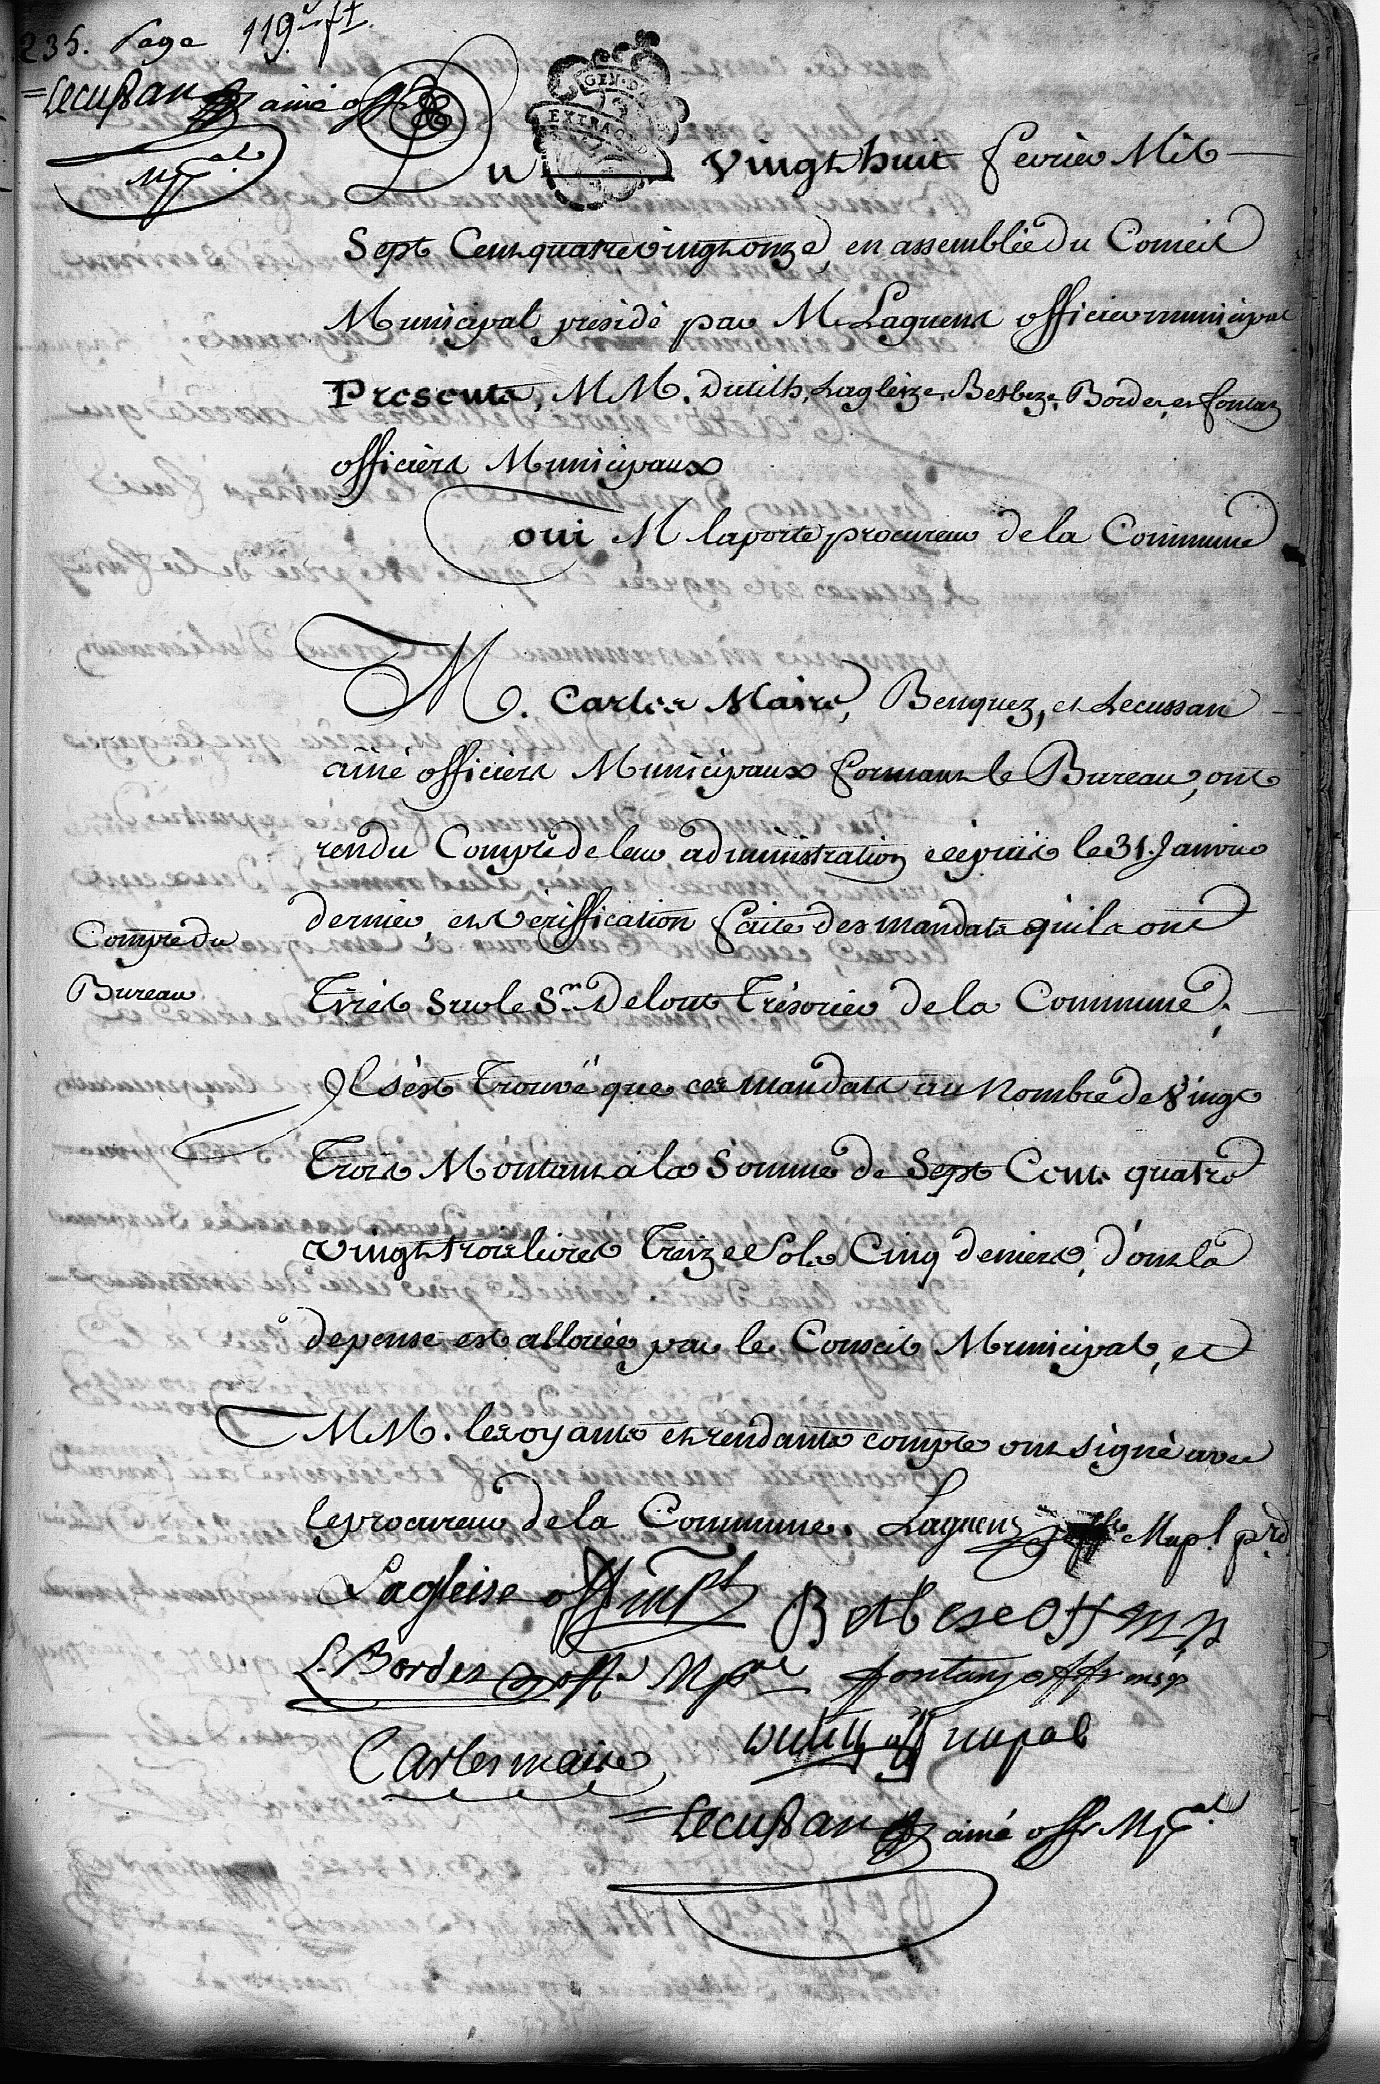 235. Page 119.e ft.
Lecussan ainé off
Mpal
GEN. D
EXTRAORD
Du vingt huit fevrier Mil
Sept Cent quatre vingt onze, en assemblée du Conseil
Municipal présidé par M. Laguens officier municipal
Presents, M M. Dutilh, Lagleize, Betbeze, Bordes, et fontan
officiers Municipaux
oui M laporte procureur de la Commune
M. Carles Maire, Benquez, et Lecussan
ainé officiers Municipaux formant le Bureau, ont
rendu Compte de leur administration depuis le 31. Janvier
dernier, et vériffication faite des mandats qu'ils ont
Compte du
Bureau
Tirés sur le Sr. Delout Trésorier de la Commune,
Il s'est Trouvé que ces mandats au Nombre de Vingt
Trois Montant à la Somme de Sept Cent quatre
vingt trois livres Treize Sols Cinq deniers, dont la
depense est allouée par le Conseil Municipal, et
MM. les oyants et rendants compte ont signé avec
le procureur de la Commune. Laguens Mupl. prd.
Lagleise off mpl Betbeze off m p
L. Bordes off. Mpal fontan offr mp
Carles maire Dutilh off mupal
Lecussan ainé offr Mpal